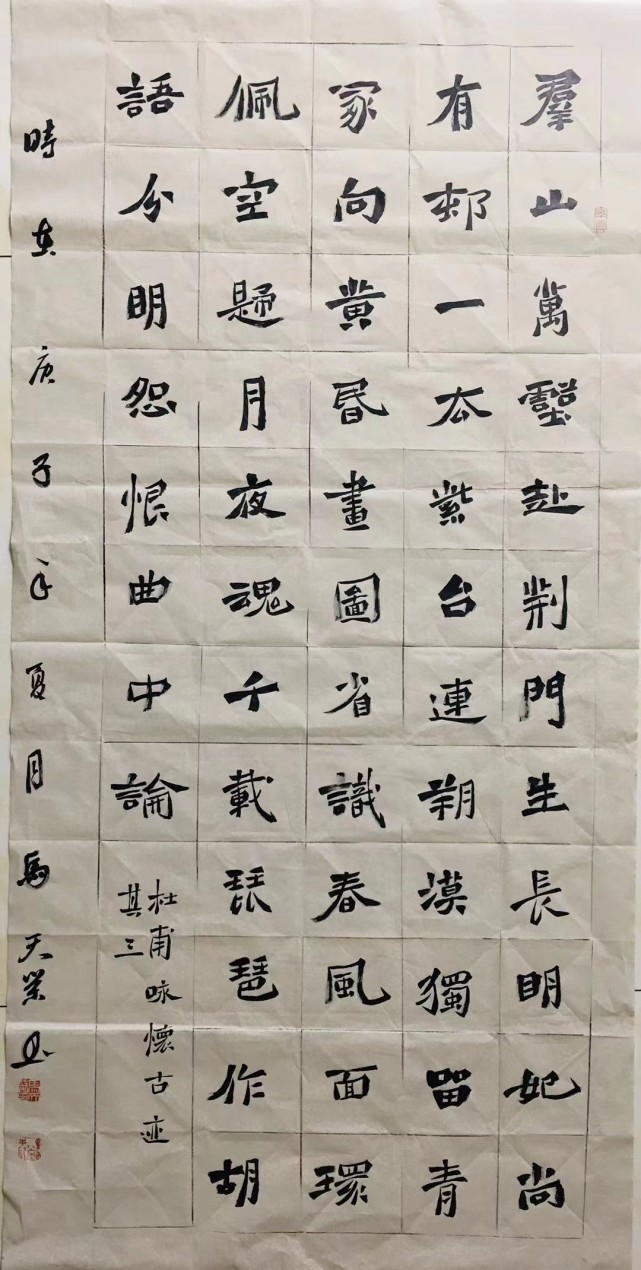 羣山萬壑赴荆門生長明妃尚
有邨一去紫台連朔漠獨留青
冢向黄昏畫圖省識春風面環
佩空歸月夜魂千載琵琶作胡
語分明怨恨曲中論
杜甫咏懷古迹
其三
時在庚子年夏月馬天書